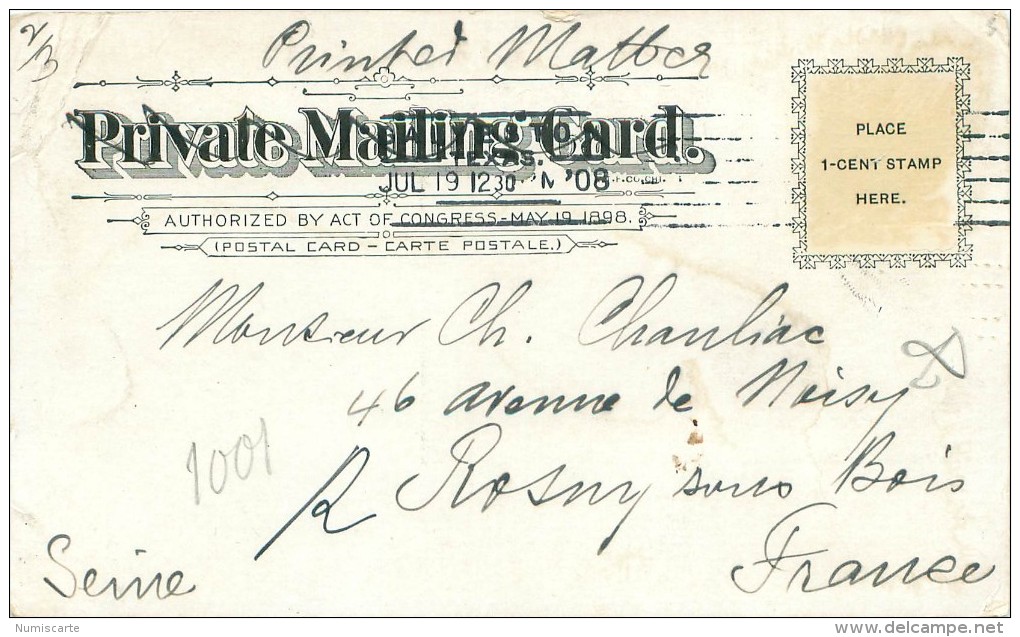 2/3
Printed Matter
Private Mailing Card.
GALVESTON
TEXAS.
JUL 19 12 30 '08
AUTHORIZED BY ACT OF CONGRESS-MAY 19, 1898.
(POSTAL CARD - CARTE POSTALE.)
PLACE
1-CENT STAMP
HERE.
Monsieur Ch. Chauliac
46 avenue de Noisy
1001
R Rosny sous Bois
Seine
France
Numiscarte
delcampe.net